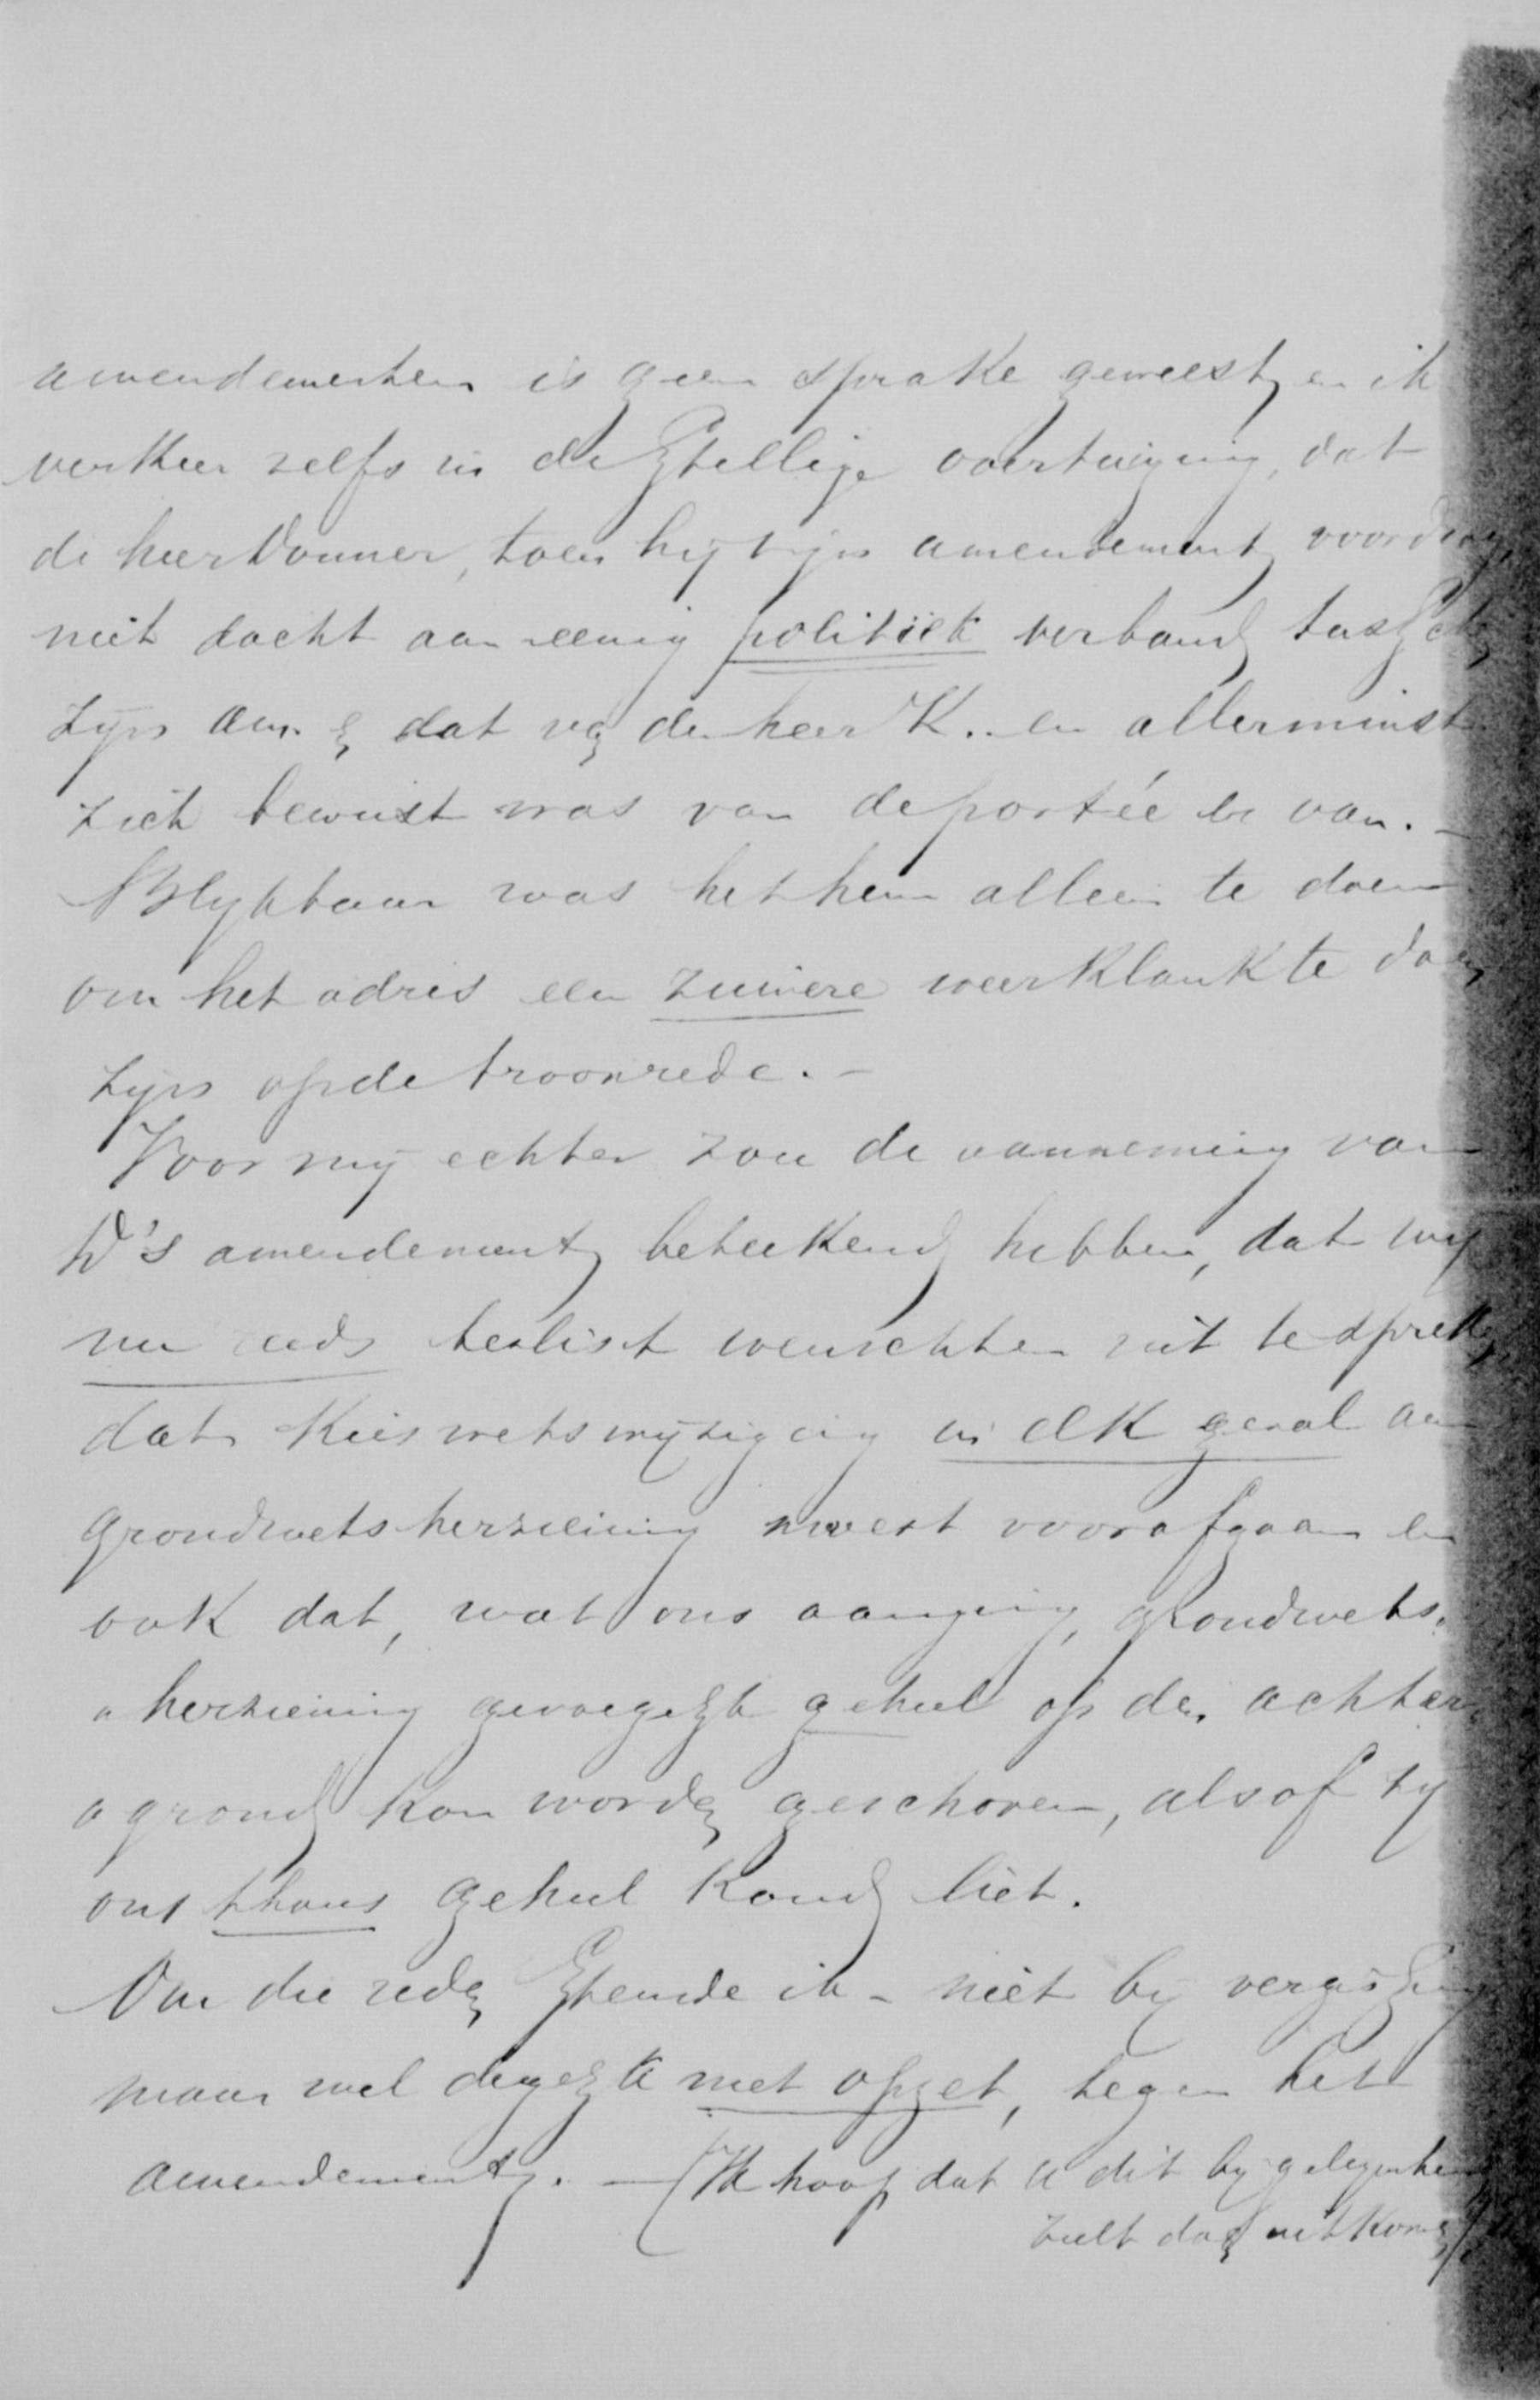 amendementen is geen sprake geweest en ik
verkeer zelfs in de stellige overtuiging, dat
de heer Donner, toen hij zijn amendement voordroeg,
niet dacht aan eenig politiek verband tusschen
zijn am. en dat vd den heer K.. en allerminst
zich bewust was van de portée er van. —
Blijkbaar was het hem alleen te doen
om het adres een zuivere weerklank te doen
zijn op de troonrede. —
Voor mij echter zou de aanneming van
D's amendement beteekend hebben, dat wij
nu reeds beslist wenschten uit te spreken,
dat Kieswetswijziging in elk geval aan
grondwetsherziening moest voorafgaan en
ook dat, wat ons aanging, grondwets-
herziening gevoegelijk geheel op den achter-
grond kon worden geschoven, alsof zij
ons thans geheel koud liet.
Om die reden stemde ik - niet bij vergissing
maar wel degelijk met opzet, tegen het
amendement. — (Ik hoop dat u dit bij gelegenheid
zult doen uitkomen).